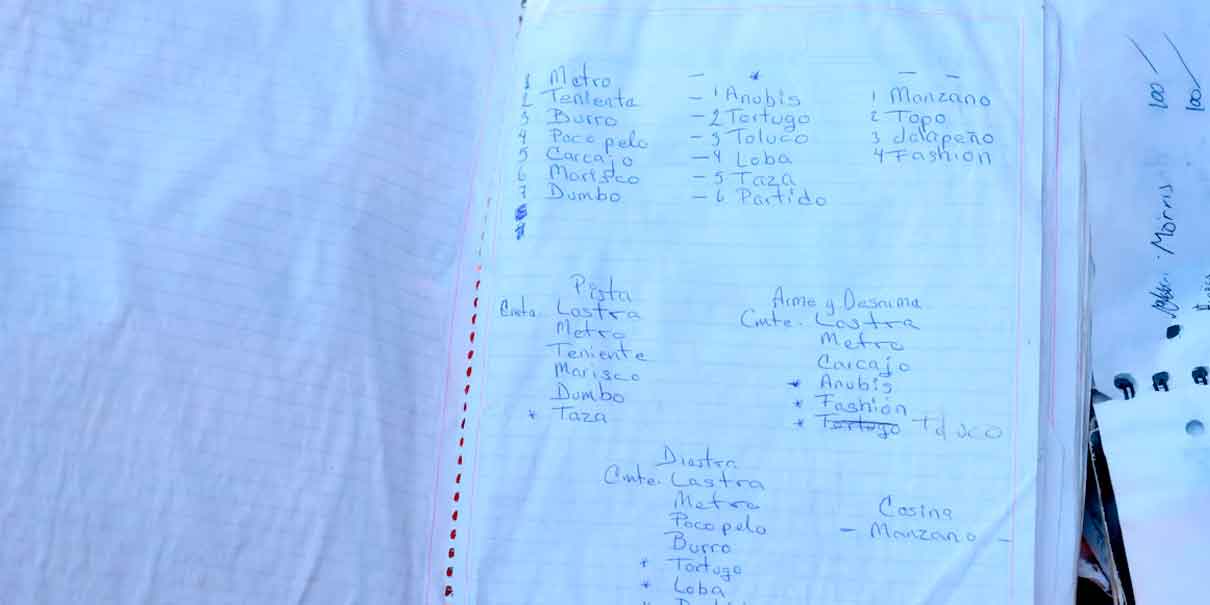 1 Metro
2 Tenienta
3 Burro
4 Poco pelo
5 Carcajo
6 Marisco
7 Dumbo
- *
- 1 Anubis
- 2 Tortugo
- 3 Toluco
- 4 Loba
- 5 Taza
- 6 Partido
- -
1 Manzano
2 Topo
3 Jalapeño
4 Fashion
Pista
Lastra
Metro
Teniente
Marisco
Dumbo
* Taza
Arme y Desarma
Cmte. Lastra
Metro
Carcajo
* Anubis
* Fashion
* Tortugo Toluco
Diestra
Cmte. Lastra
Metro
Poco pelo
Burro
* Tortugo
* Loba
Cosina
- Manzano -
Morris
100
100